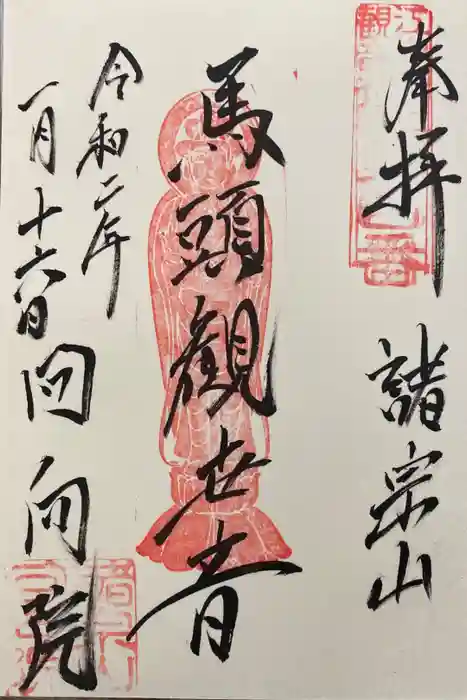 奉拝 諸宗山
馬頭観世音
令和二年
一月十六日 回向院